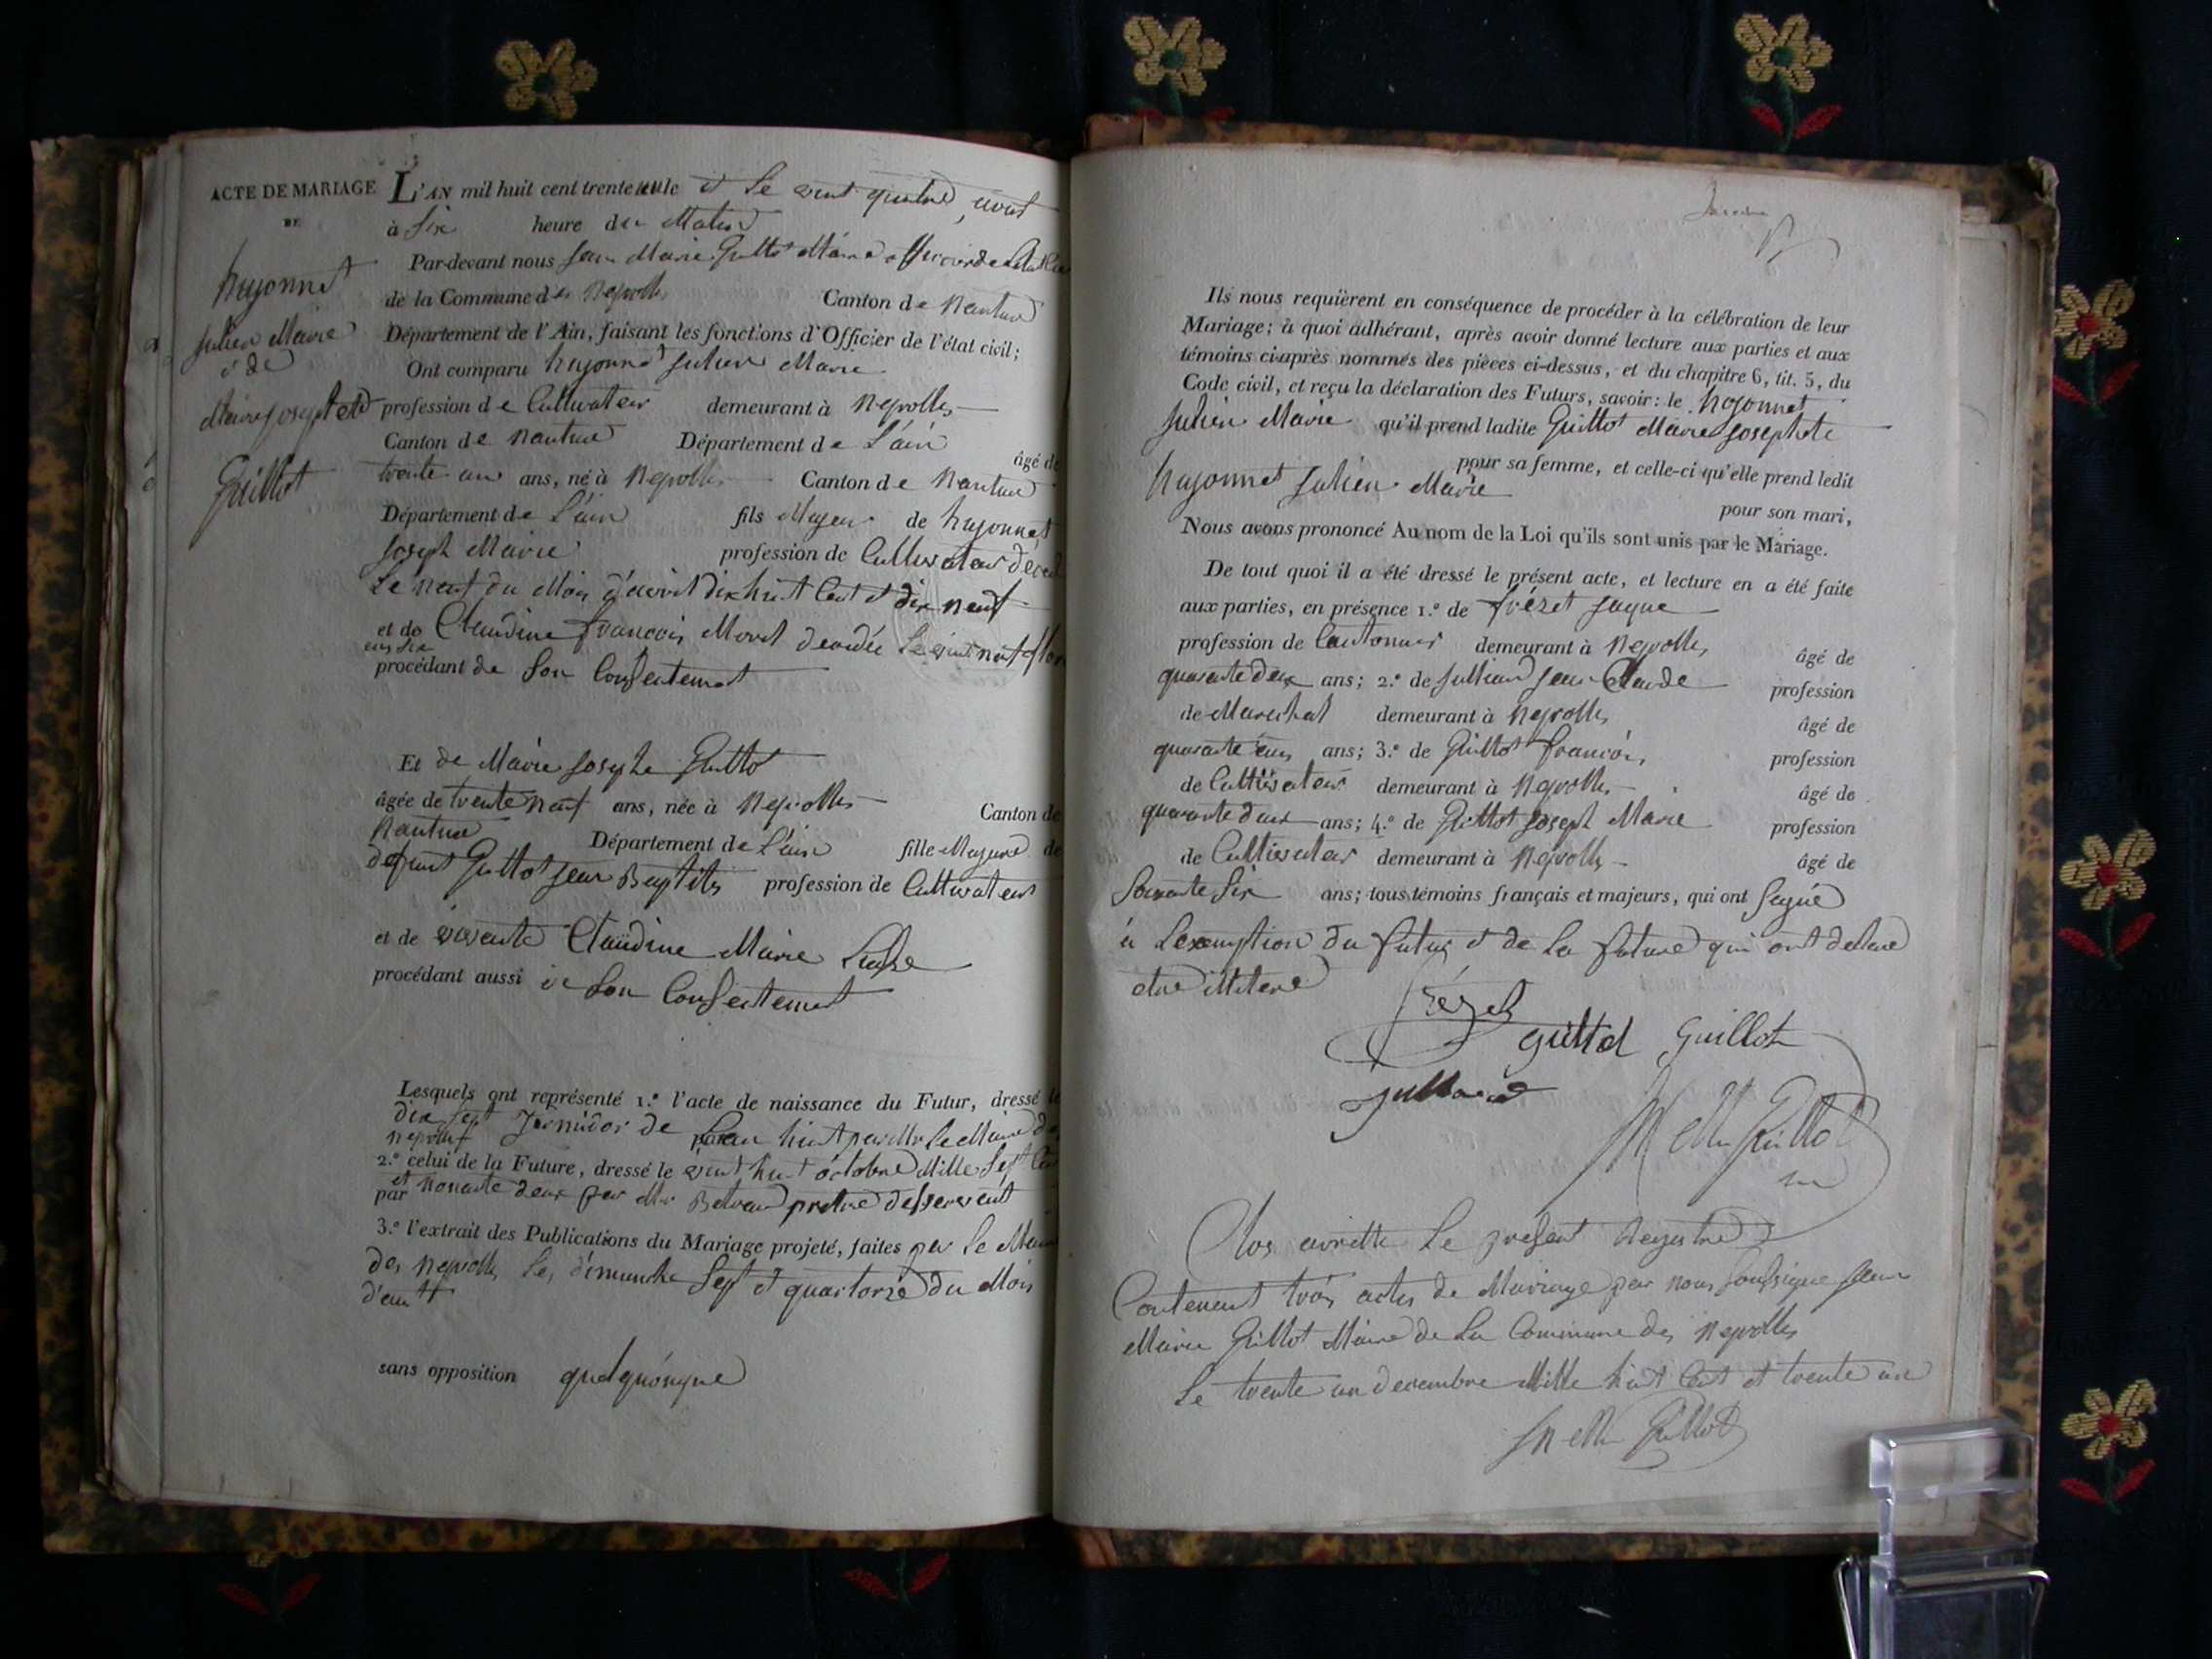 ACTE DE MARIAGE
DE
hugonnet
Julien Marie
& de
Marie Josephete
Guillot
L'AN mil huit cent trente et le vint quatre aout
à Six heure du Matin
Par-devant nous Jean Marie Guillot Maire officier de
de la Commune des neyrolles Canton de nantua
Département de l'Ain, faisant les fonctions d'Officier de l'état civil;
Ont comparu hugonnet Julien Marie
profession de Cultivateur demeurant à neyrolles
Canton de nantua Département de L'ain âgé de
trente un ans, né à neyrolles Canton de nantua
Département de L'ain fils Majeur de hugonnet
Joseph Marie profession de Cultivateur
Le neuf du Mois d'avril dix huit Cent et dix neuf
et de Claudine francois Moret decedée Le vint neuf
procédant de Son Consentement
Et de Marie Josephe Guillot
âgée de trente neuf ans, née à neyrolles Canton de
nantua Département de L'ain fille Majeure de
defunt Guillot Jean Baptiste profession de Cultivateur
et de vivante Claudine Marie
procédant aussi de Son Consentement
Lesquels ont représenté 1.º l'acte de naissance du Futur, dressé le
dix Sept de L'an huit par Mr Le Maire de
2.º celui de la Future, dressé le vint huit octobre Mille Sept Cent
et nonante deux par Mr pretre desservent
3.º l'extrait des Publications du Mariage projeté, faites par Le Maire
des neyrolles Les dimanche Sept et quatorze du Mois
d'aout
sans opposition quelquonque
Ils nous requièrent en conséquence de procéder à la célébration de leur
Mariage; à quoi adhérant, après avoir donné lecture aux parties et aux
témoins ci-après nommés des pièces ci-dessus, et du chapitre 6, tit. 5, du
Code civil, et reçu la déclaration des Futurs, savoir: le hugonnet
Julien Marie qu'il prend ladite Guillot Marie Josephete
pour sa femme, et celle-ci qu'elle prend ledit
hugonnet Julien Marie
pour son mari,
Nous avons prononcé Au nom de la Loi qu'ils sont unis par le Mariage.
De tout quoi il a été dressé le présent acte, et lecture en a été faite
aux parties, en présence 1.º de frézet Jaque
profession de Cantonnier demeurant à neyrolles âgé de
quarante deux ans; 2.º de Julliard Jean Claude profession
de Marechal demeurant à neyrolles âgé de
quarante ans; 3.º de Guillot francois profession
de Cultivateur demeurant à neyrolles âgé de
quarante deux ans; 4.º de Guillot Joseph Marie profession
de Cultivateur demeurant à neyrolles âgé de
Soixante Six ans; tous témoins français et majeurs, qui ont Signé
à L'exemption du futur et de La future qui ont declare
etre illiteré
frézet
guillot Guillot
julliard
Guillot
Clos arrette Le present Registre
Contenent trois actes de Mariage par nous Soussigne Jean
Marie Guillot Maire de La Commune des neyrolles
Le trente un decembre Mille huit Cent et trente un
Guillot